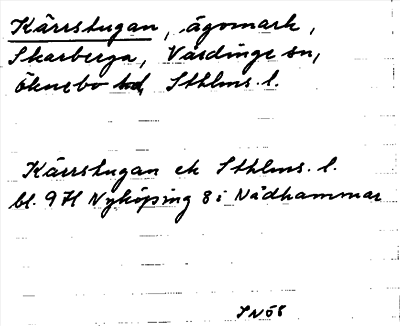 Kärrstugan, ägomark,
Skarberga, Vårdinge sn,
Öknebo hd, Sthlms. l.
Kärrstugan ek Sthlms. l.
bl. 9H Nyköping 8i Nådhammar
SNÖ8